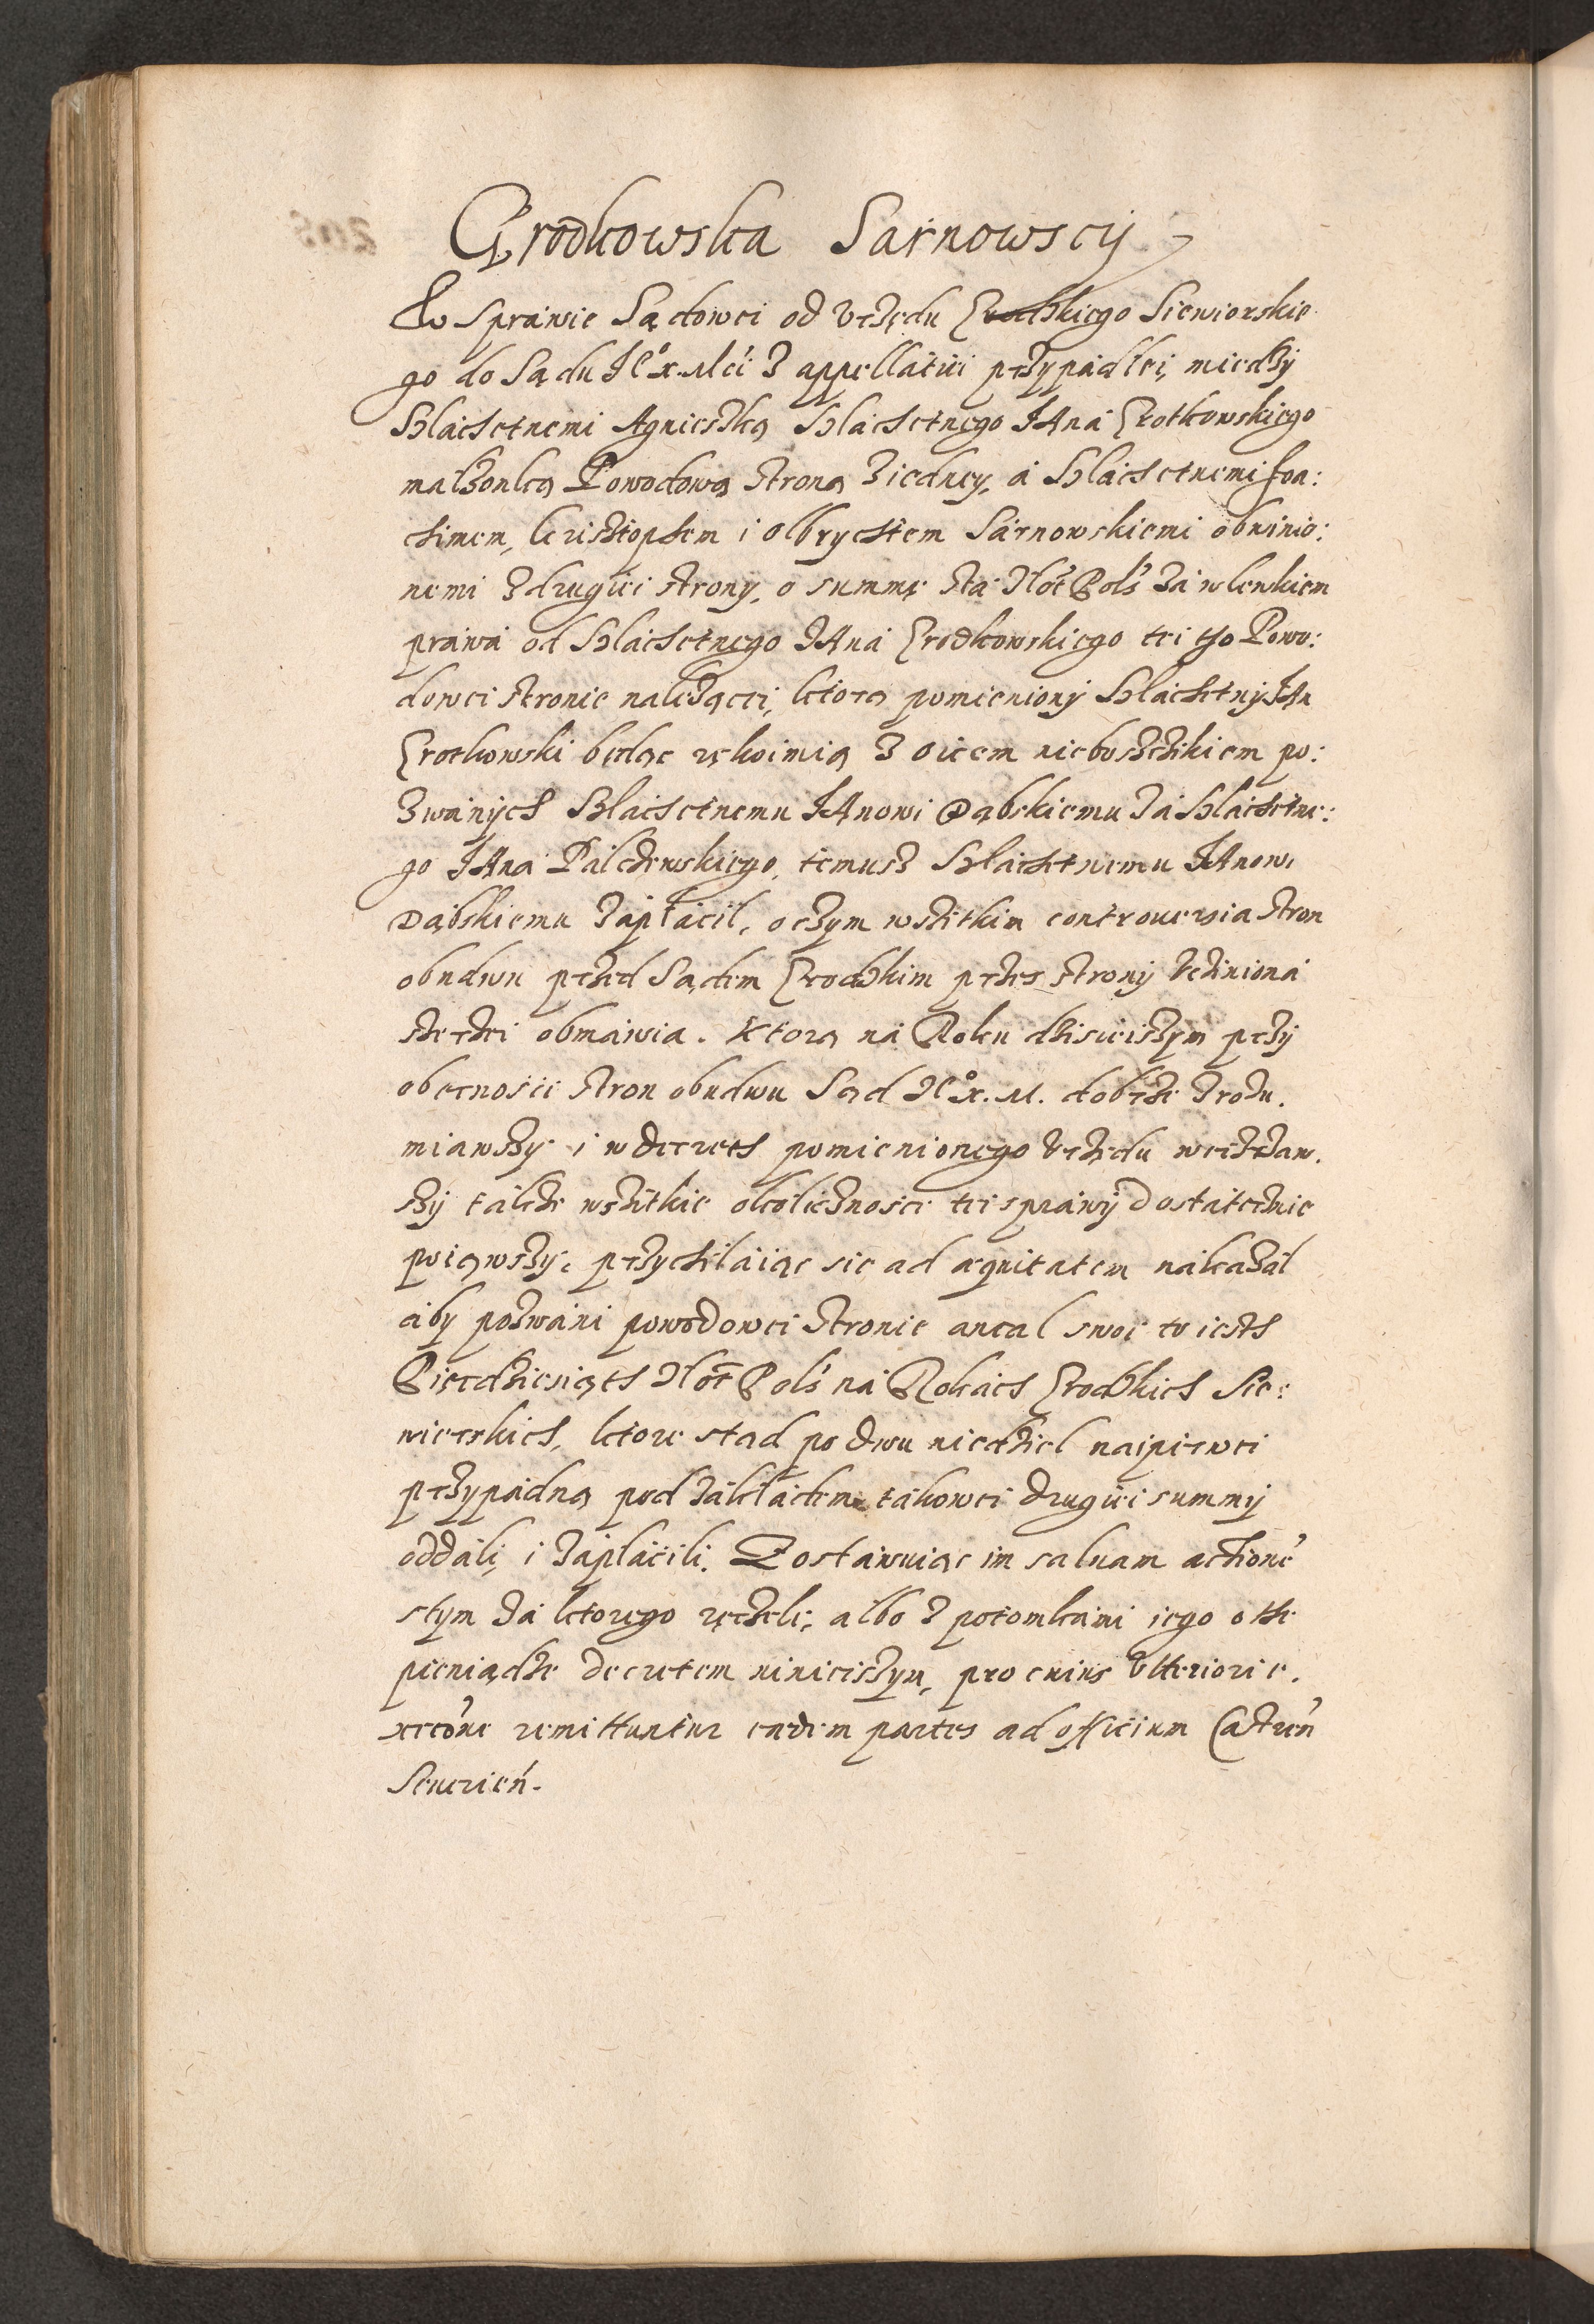 Grodkowska Sarnowscy
W sprawie Sądowei od Vrzędu Grodzkiego Siewiorskie
go do Sądu Je͞o X. Mći z appellatiei przypadłei, miedzy
Szlachetnemi Agnieszką Szlachetnego JAna Grotkowskiego
małzonką Powodową stroną z iedney, á Szlachetnemi Joa:
chimem, Krisztophem i Olbrychtem Sárnowskiemi obwinio:
nemi z drugiei strony, o summę sta złot Pols za wlewkiem
práwá od Szlachetnego JAná Grodkowskiego tei tho Powo:
dowei stronie nalezącei, ktorą pomieniony Szlachetny JAn
Grotkowski będąc rękoimią z oicem nieboszczikiem po:
zwánych Szlachetnemu JAnowi Dąbskiemu zá Szlachetne:
go JAna Pálczewskiego, temusz Szlachetnemu JAnowi
Dąbskiemu zápłácił, o czym wszitkim controuersia stron
obudwu przed Sądem Grodzkim przes strony vczinioná
szerzei obmawia. Ktorą ná Roku dzisieiszym przy
obecnosci stron obudwu Sąd Je͞o X. M. dobrze zrozu.
miawszy i w decreth pomienionego vrzędu weirzaw.
szy tákze wszitkie okolicznosci tei sprawy dostátecznie
poiąwszy, przychiláiąc sie ad æquitatem nákazál
áby pozwáni powodowei stronie antal swoi to iesth
Pięcdziesiąth złot Pols ná Rokách Grodzkich Sie:
wierskich, ktore stąd po dwu niedziel naipierwei
przypádną pod zakłádem tákowei drugiei summy
oddáli, i zápłácili. Zostáwuiąc im saluam actioné
stym zá ktorego ręczeli, albo z potomkámi iego o the
pieniądze decretem ninieiszym, pro cuius vlteriori e.
xecóne remittuntur eædem partes ad officium Castreń
Seuerień.